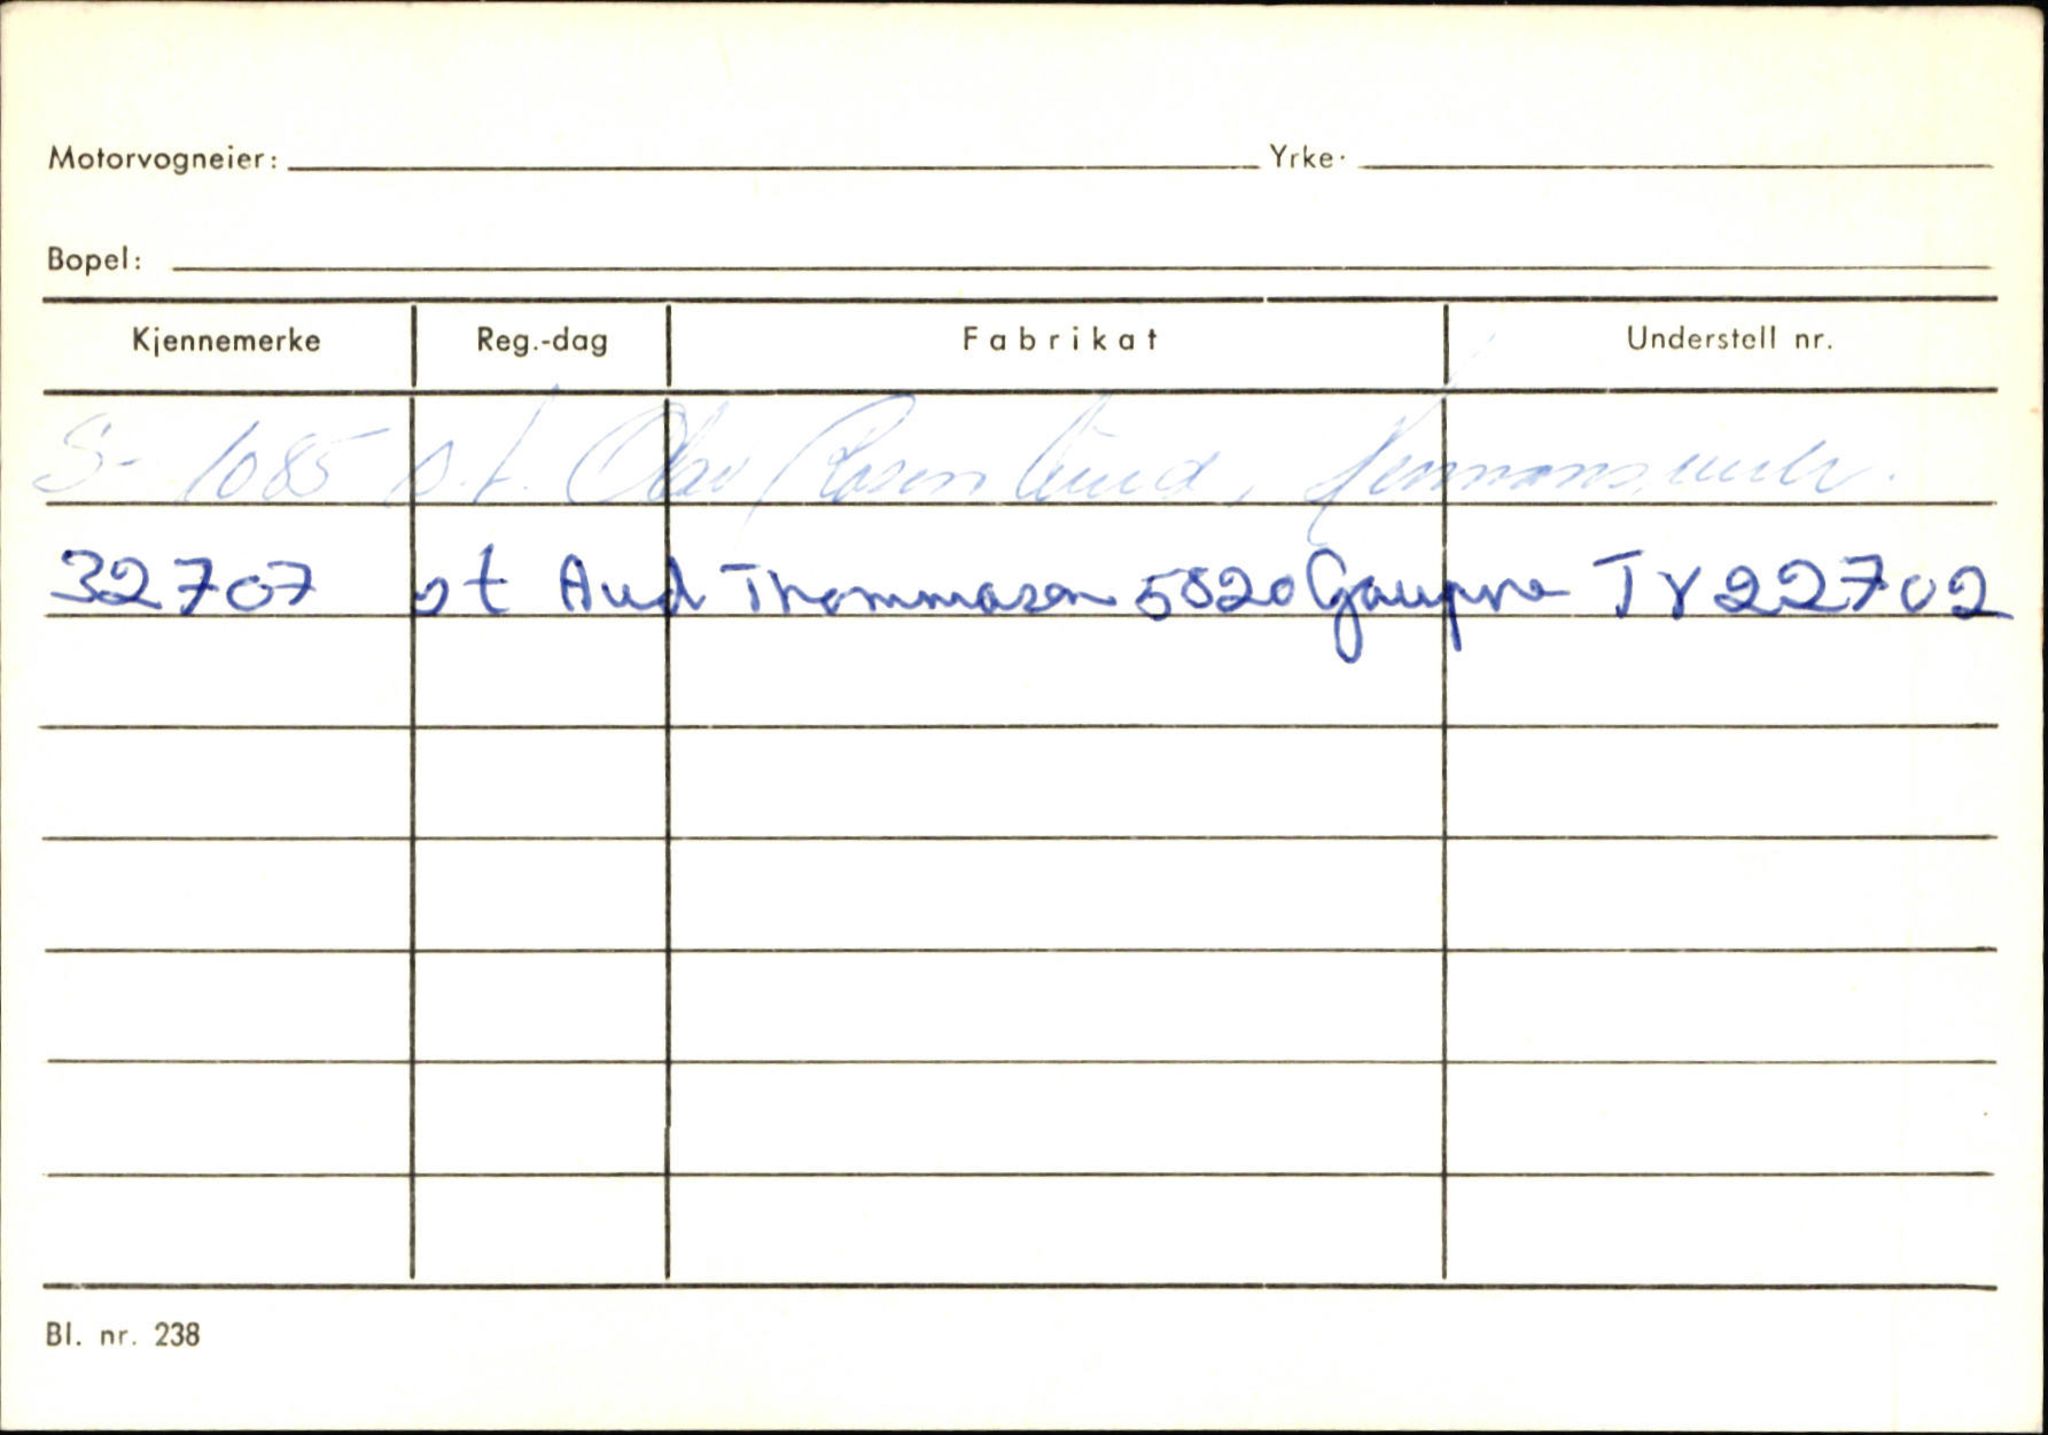 Motorvogneier: Yrke.
Bopel:
Kjennemerke Reg.-dag Fabrikat Understell nr.
S- 1085 o.t. Olav Rosenlund,
32707 ot Aud Thommasen 5820 Gaupne TY22702
Bl. nr. 238